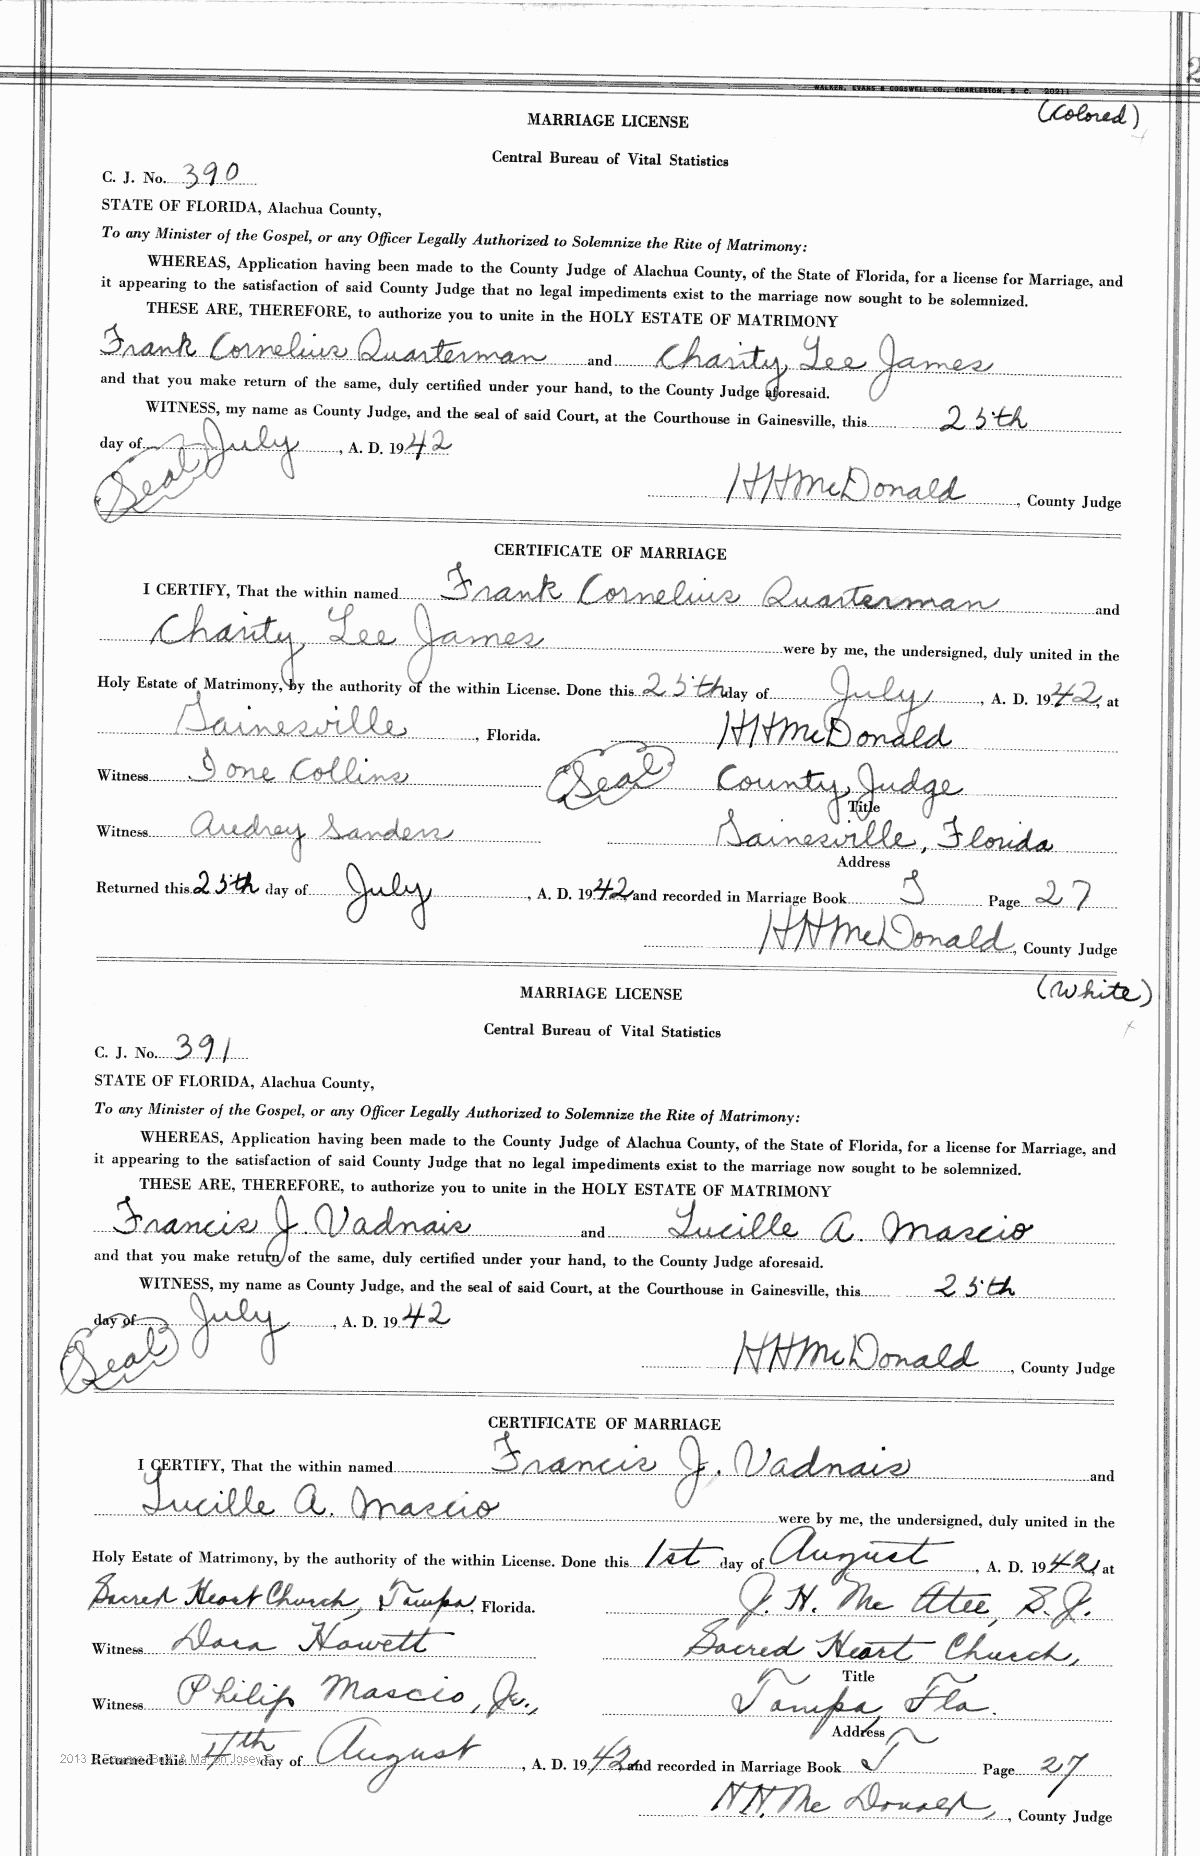 2
WALKER, EVANS & COGSWELL CO., CHARLESTON, S. C. 20211
(Colored)
MARRIAGE LICENSE
Central Bureau of Vital Statistics
C. J. No. 390
STATE OF FLORIDA, Alachua County,
To any Minister of the Gospel, or any Officer Legally Authorized to Solemnize the Rite of Matrimony:
WHEREAS, Application having been made to the County Judge of Alachua County, of the State of Florida, for a license for Marriage, and
it appearing to the satisfaction of said County Judge that no legal impediments exist to the marriage now sought to be solemnized.
THESE ARE, THEREFORE, to authorize you to unite in the HOLY ESTATE OF MATRIMONY
Frank Cornelius Quarterman and Charity Lee James
and that you make return of the same, duly certified under your hand, to the County Judge aforesaid.
WITNESS, my name as County Judge, and the seal of said Court, at the Courthouse in Gainesville, this 25th
day of July, A. D. 1942
(Seal) HHMcDonald, County Judge
CERTIFICATE OF MARRIAGE
I CERTIFY, That the within named Frank Cornelius Quarterman and
Charity Lee James were by me, the undersigned, duly united in the
Holy Estate of Matrimony, by the authority of the within License. Done this 25th day of July, A. D. 1942, at
Gainesville, Florida. HHMcDonald
Witness Ione Collins (Seal) County Judge
Title
Witness Audrey Sanders Gainesville, Florida
Address
Returned this 25th day of July, A. D. 1942, and recorded in Marriage Book T Page 27
HHMcDonald, County Judge
(White)
MARRIAGE LICENSE
Central Bureau of Vital Statistics
C. J. No. 391
STATE OF FLORIDA, Alachua County,
To any Minister of the Gospel, or any Officer Legally Authorized to Solemnize the Rite of Matrimony:
WHEREAS, Application having been made to the County Judge of Alachua County, of the State of Florida, for a license for Marriage, and
it appearing to the satisfaction of said County Judge that no legal impediments exist to the marriage now sought to be solemnized.
THESE ARE, THEREFORE, to authorize you to unite in the HOLY ESTATE OF MATRIMONY
Francis J. Vadnais and Lucille A. Mascio
and that you make return of the same, duly certified under your hand, to the County Judge aforesaid.
WITNESS, my name as County Judge, and the seal of said Court, at the Courthouse in Gainesville, this 25th
day of July, A. D. 1942
(Seal) HHMcDonald, County Judge
CERTIFICATE OF MARRIAGE
I CERTIFY, That the within named Francis J. Vadnais and
Lucille A. Mascio were by me, the undersigned, duly united in the
Holy Estate of Matrimony, by the authority of the within License. Done this 1st day of August, A. D. 1942, at
Sacred Heart Church, Tampa, Florida. J. H. Mc Atee, S.J.
Witness Dora Howett Sacred Heart Church,
Title
Witness Philip Mascio, Jr., Tampa, Fla.
Address
Returned this 4th day of August, A. D. 1942, and recorded in Marriage Book T Page 27
H.H. Mc Donald, County Judge
2013